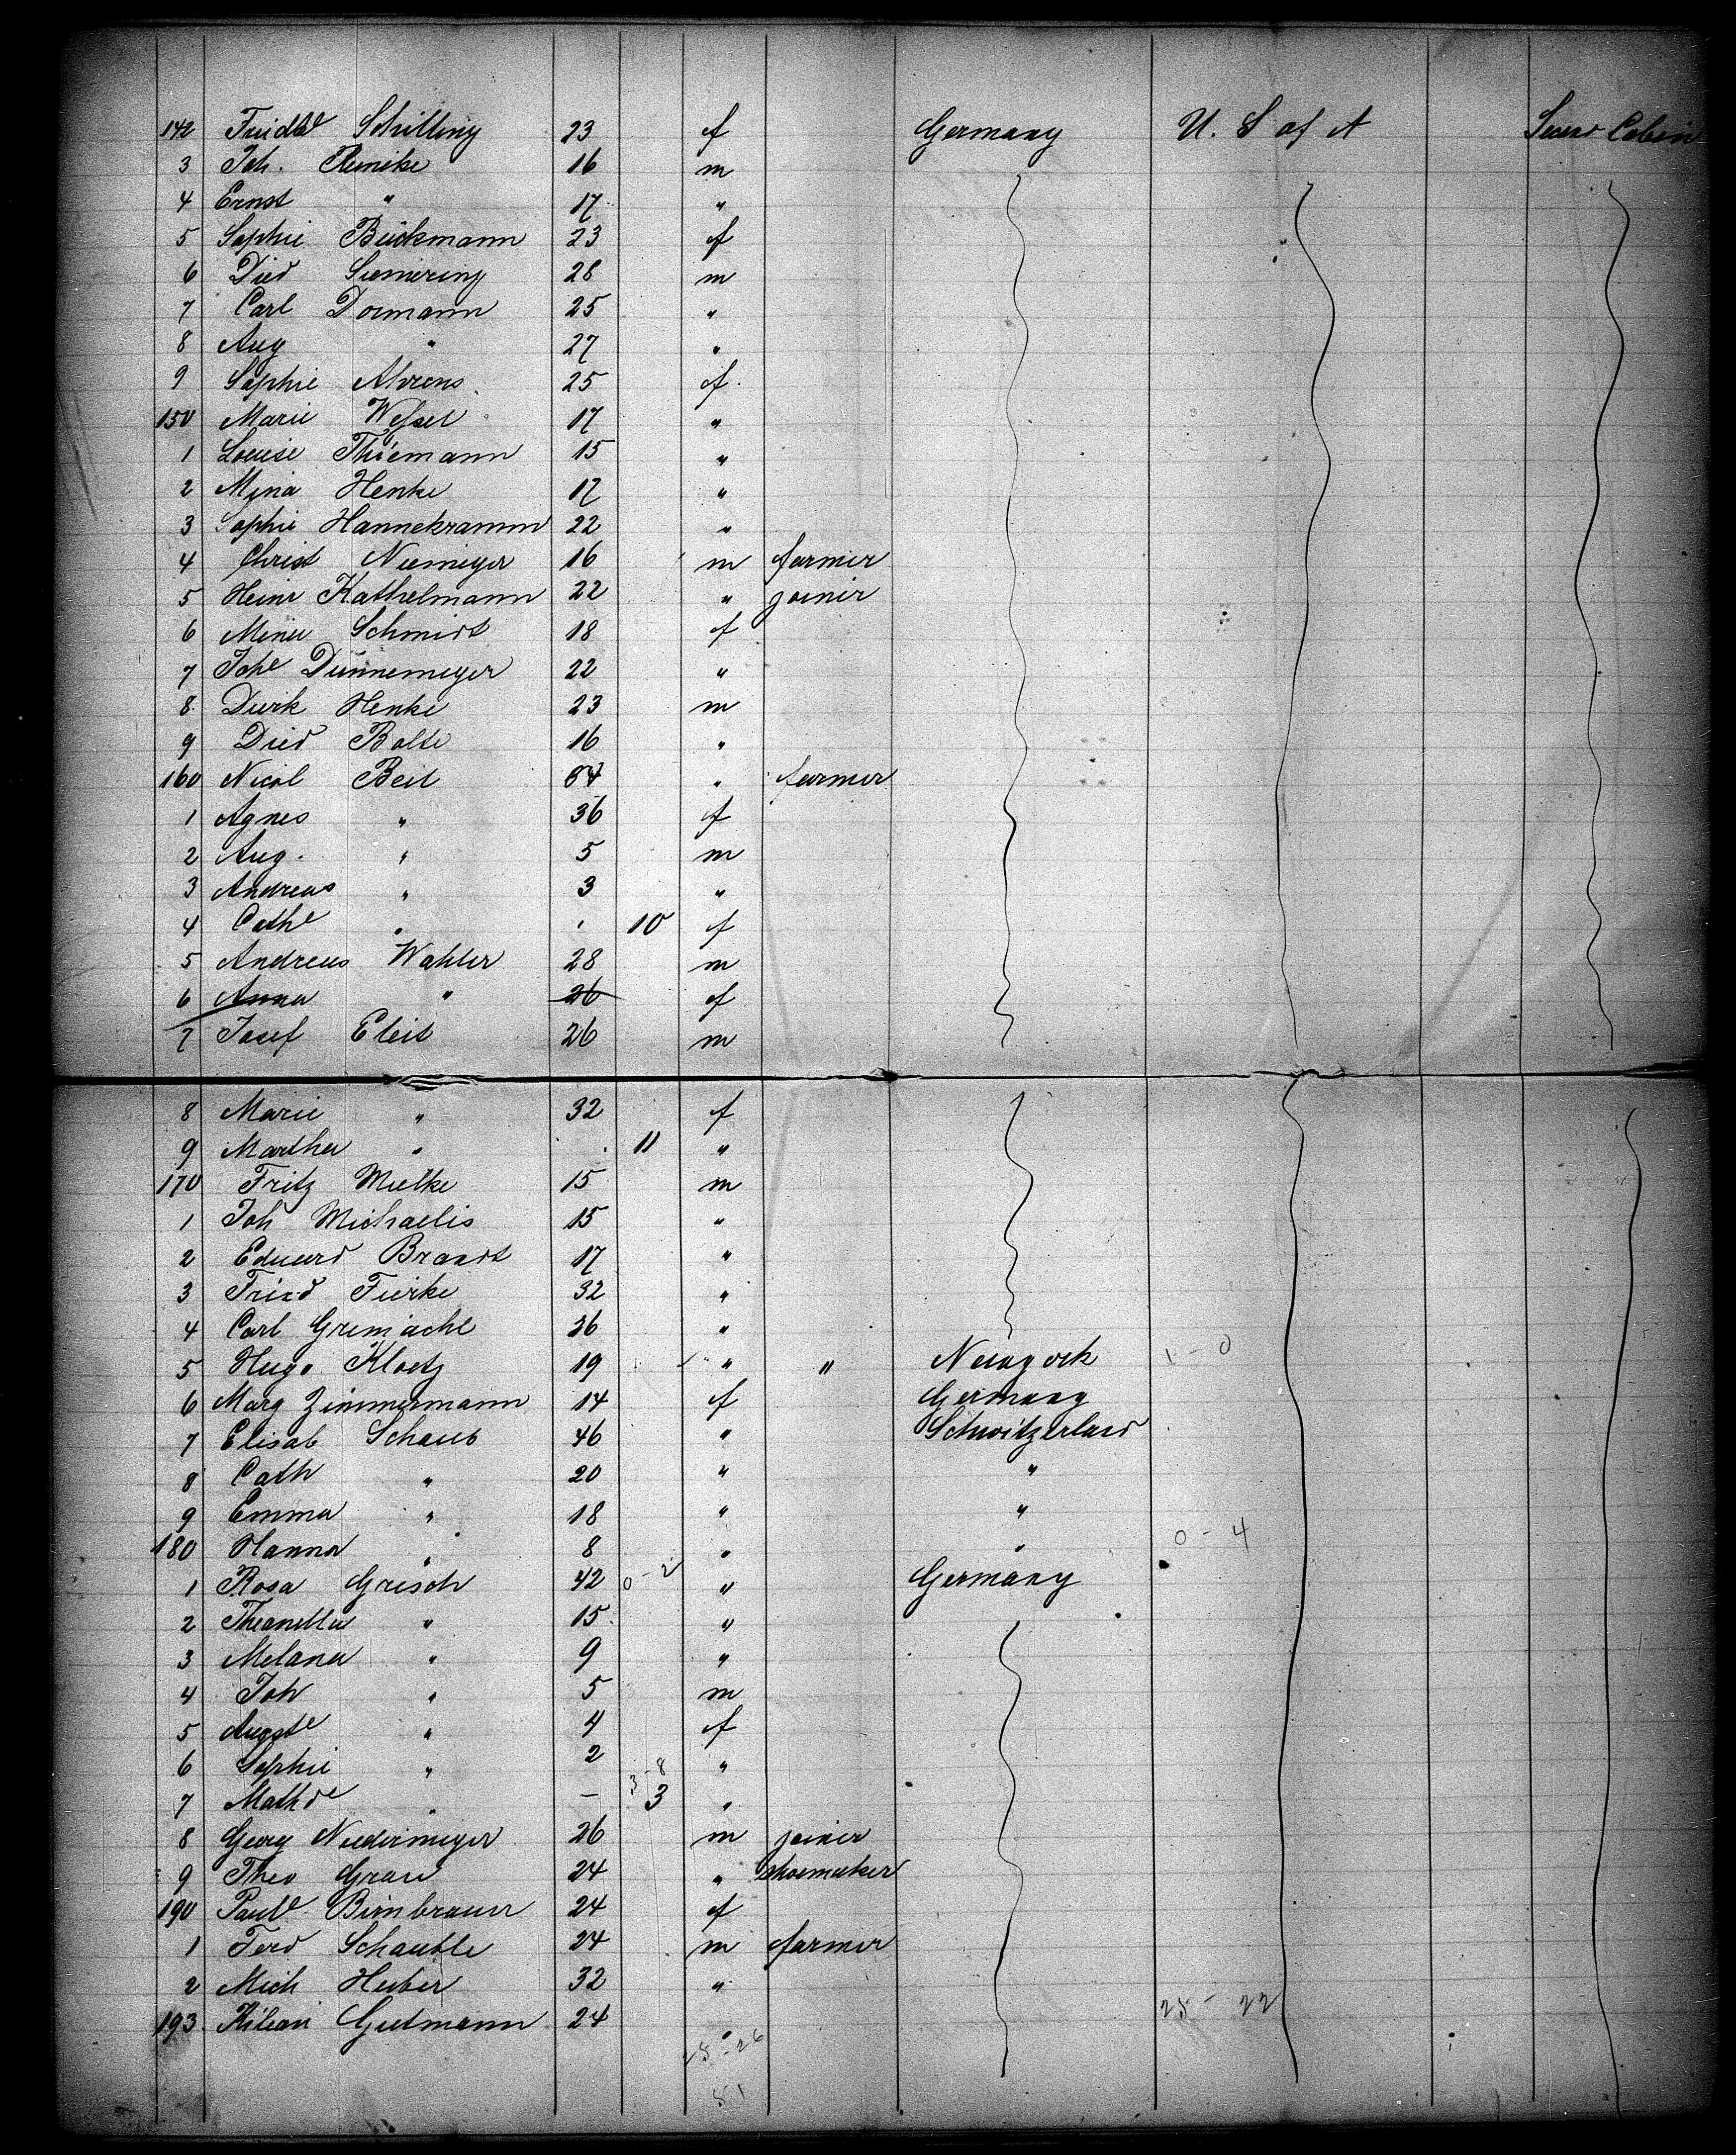 142 Friedke Schilling 23 f Germany U. S of A Cabin
3 Joh. Reinike 16 m
4 Ernst " 17 "
5 Sophie Beückmann 23 f
6 Died Siemering 28 m
7 Carl Dormann 25 "
8 Aug " 27 "
9 Sophie Ahrens 25 f
150 Marie Wessel 17 "
1 Louise Thiemann 15 "
2 Mina Henke 17 "
3 Sophie Hannekramm 22 "
4 Christ Niemeyer 16 m farmer
5 Heinr Kathelmann 22 " joiner
6 Mina Schmidt 18 f
7 Johe Dünnemeyer 22 "
8 Dierk Henke 23 m
9 Died Bolte 16 "
160 Nicol Beil 34 " farmer
1 Agnes " 36 f
2 Aug. " 5 m
3 Andreas " 3 "
4 Cathe " 10 f
5 Andreas Wahler 28 m
6 Anna " 26 f
7 Josef Eleit 26 m
8 Marie " 32 f
9 Martha " 11 "
170 Fritz Mielke 15 m
1 Joh Michaelis 15 "
2 Eduard Brandt 17 "
3 Fried Fierke 32 "
4 Carl 26 "
5 Hugo Kloetz 19 " " Newyork 1 - 0
6 Marg Zimmermann 14 f Germany
7 Elisab Schaub 46 " Schwitzerland
8 Cath " 20 " "
9 Emma " 18 " "
180 Hanna " 8 " " 0 - 4
1 Rosa Grisch 42 0 - 2 " Germany
2 " 15 "
3 Melana " 9 "
4 Joh " 5 m
5 Auguste " 4 f
6 Sophie " 2 3 - 8 "
7 Mathde " - 3 "
8 Georg Niedermeyer 26 m joiner
9 Theo Grau 24 " shoemaker
190 Paule Birnbrauer 24 f
1 Ferd Schauble 24 m farmer
2 Mich Heiber 32 "
193. Kilian Gutmann 24 " 25 - 22
25 - 26
51